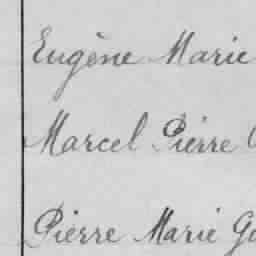 Eugène Marie
Marcel Pierre
Pierre Marie